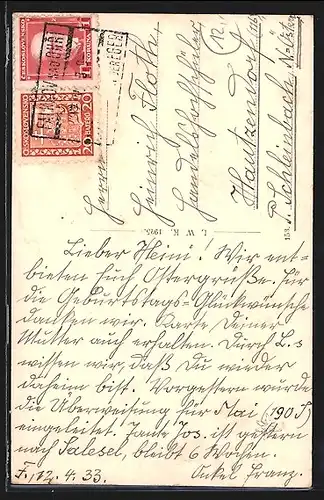 ČESKOSLOVENSKO
1 KORUNA
ČESKOSLOVENSKO
20 HALÉŘŮ 20
Herrn
Heinrich Floth,
Handelsschüler
Hautzendorf
P. Schleinbach, N.-Öster.
I. W. K. 1925.
Lieber Heini! Wir ent-
bieten Euch Ostergrüße. Für
die Geburtstags-Glückwünsche
danken wir. Karte Deiner
Mutter auch erhalten. Durch L.s
wissen wir, daß Du wieder
daheim bist. Vorgestern wurde
die Überweisung für Mai (190 S)
eingeleitet. Tante Jos. ist gestern
nach Salesel, bleibt 6 Wochen.
F., 12. 4. 33. Onkel Franz.